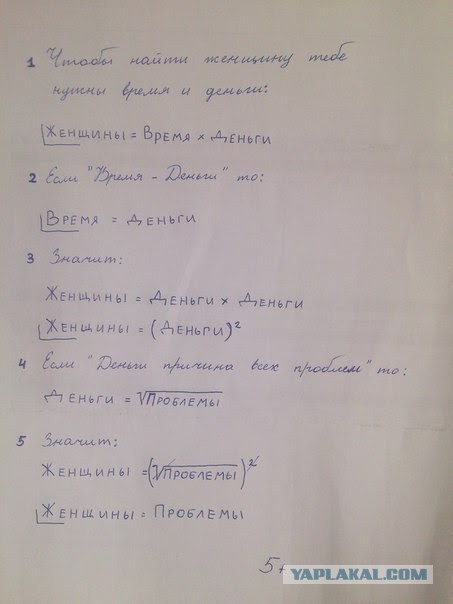 1 Чтобы найти женщину тебе
нужны время и деньги:
Женщины = Время × Деньги
2 Если "Время - Деньги" то:
Время = Деньги
3 Значит:
Женщины = Деньги × Деньги
Женщины = (Деньги)²
4 Если "Деньги причина всех проблем" то:
Деньги = √Проблемы
5 Значит:
Женщины = (√Проблемы)²
Женщины = Проблемы
5+
YAPLAKAL.COM